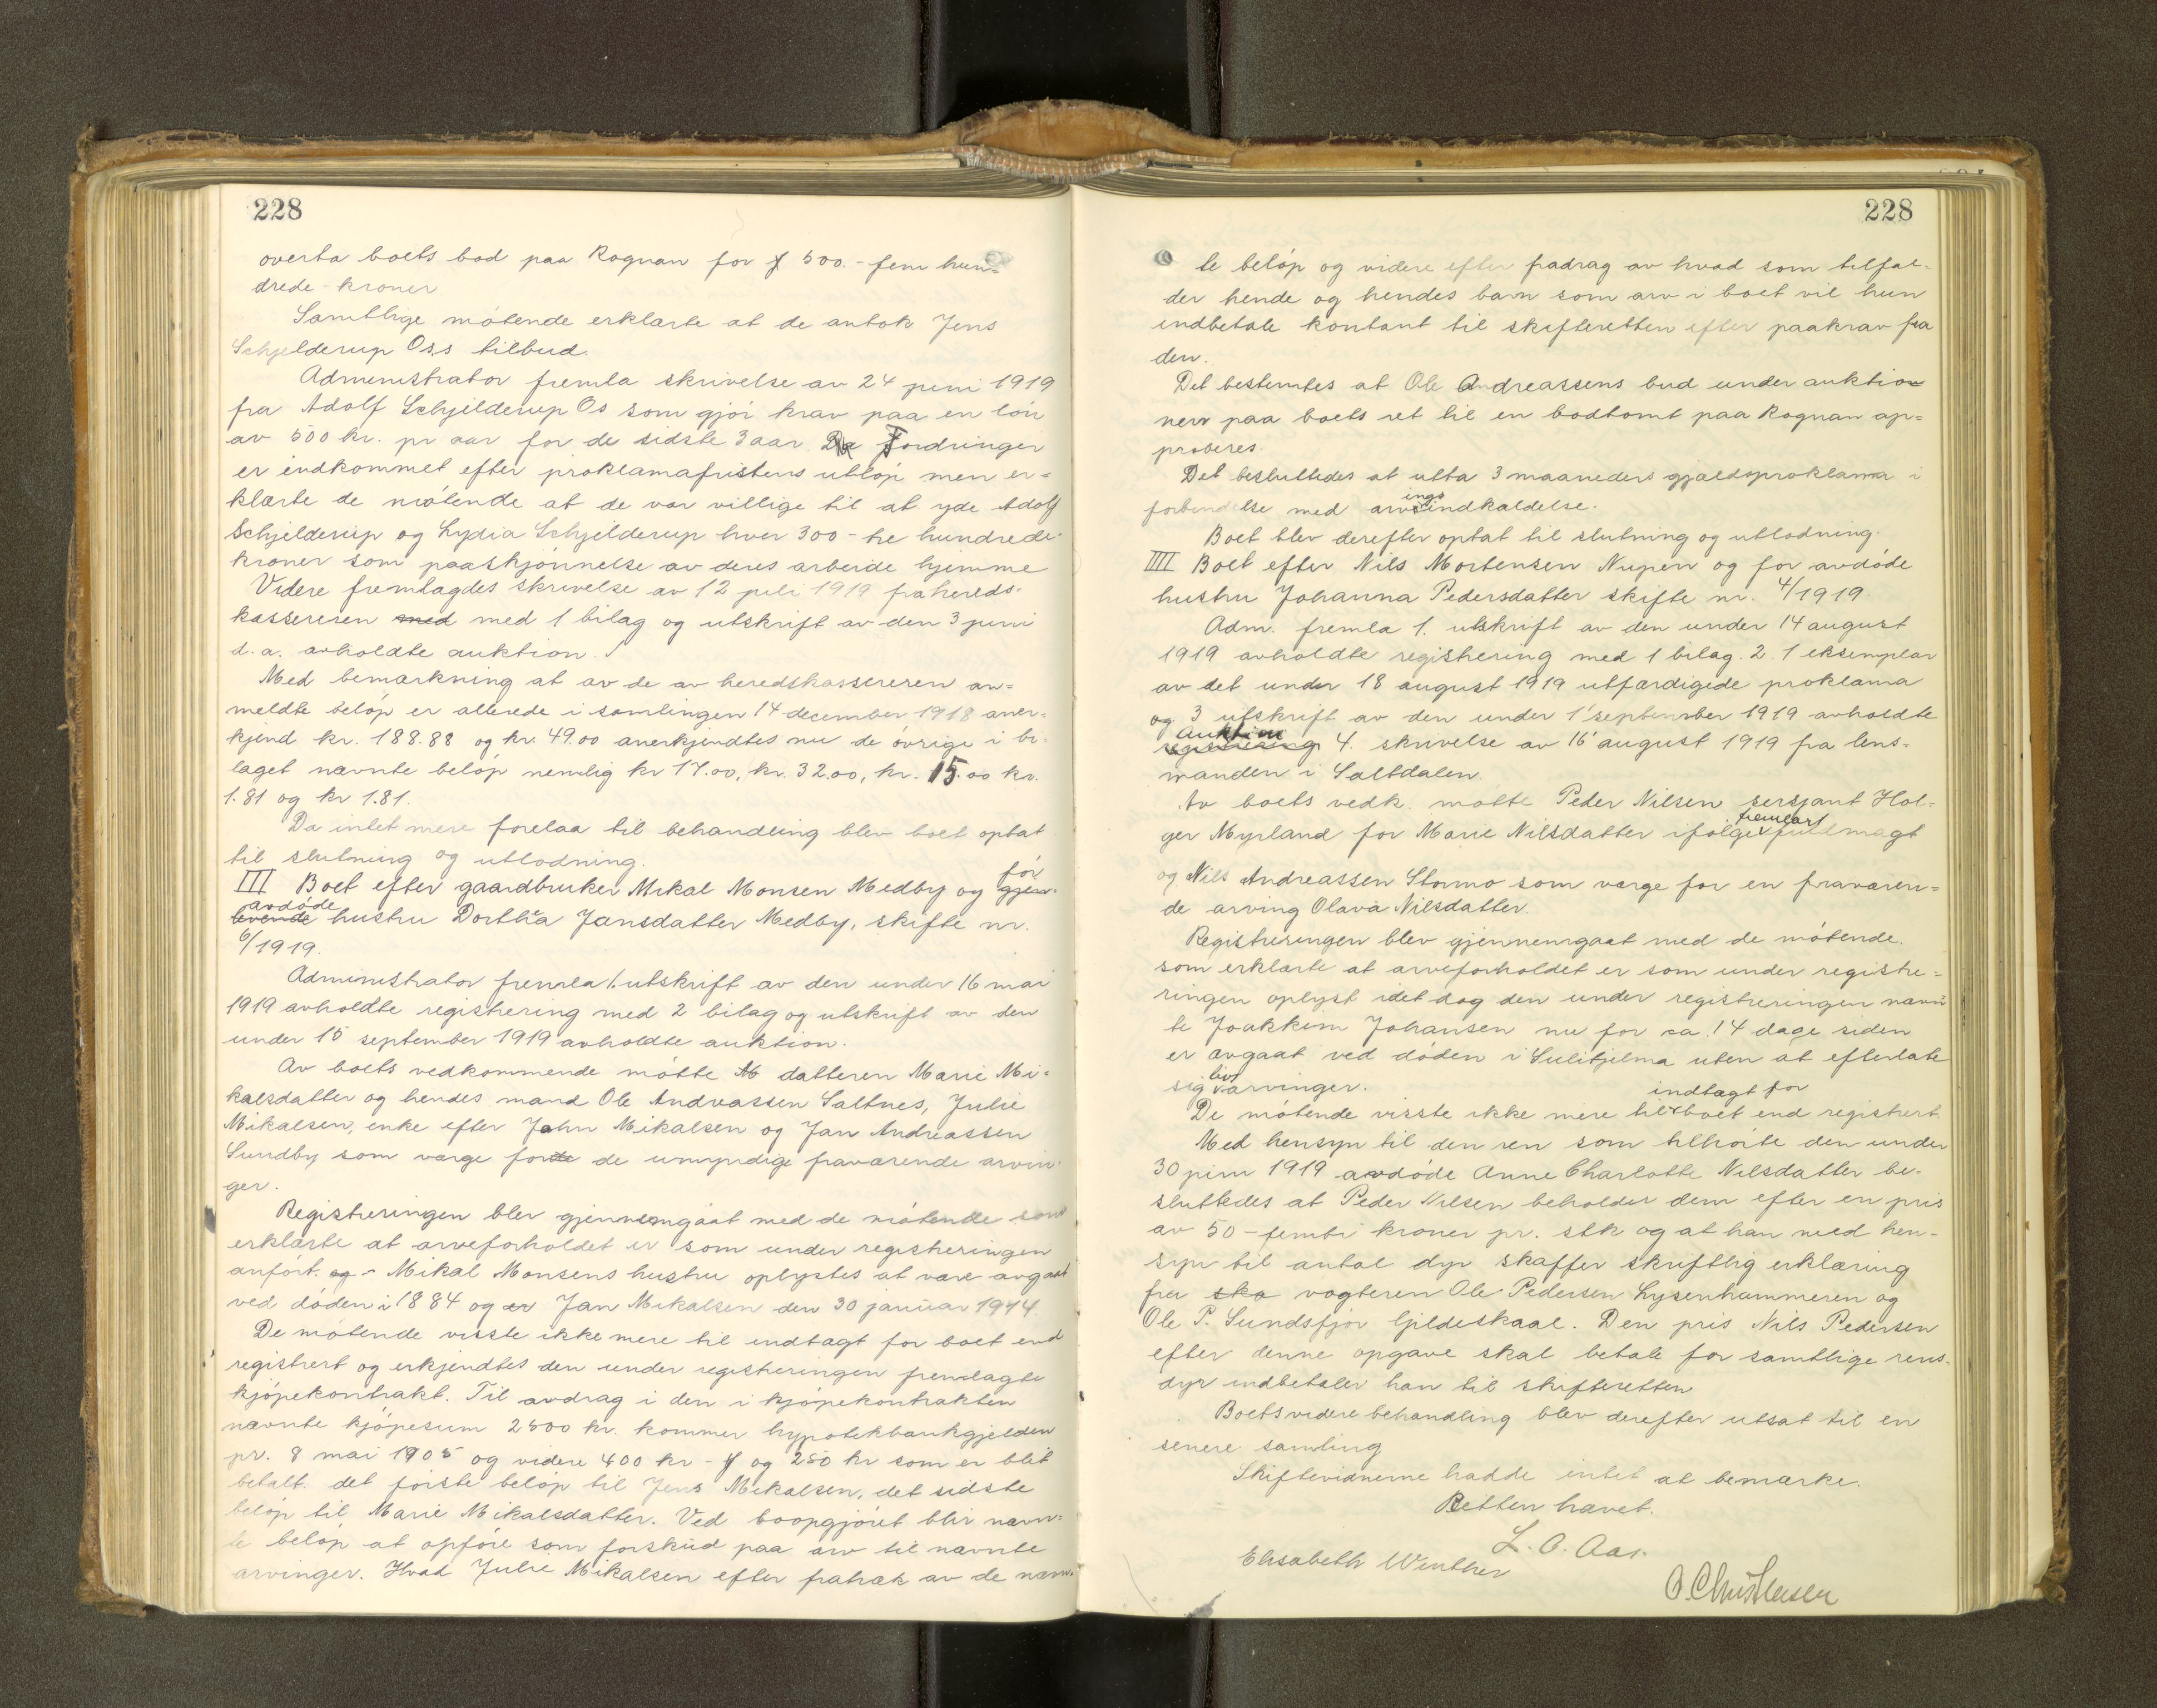 228
overta boets bod paa Rognan for 500.- fem hun=
drede - kroner
Samtlige møtende erklærte at de antok Jens
Schjelderup Os.s tilbud.
Administrator fremla skrivelse av 24 juni 1919
fra Adolf Schjelderup Os som gjør krav paa en løn
av 500 kr. pr aar for de sidste 3 aar. Fordringer
er indkommet efter proklamafristens utløp men er=
klærte de møtende at de var villige til at yde Adolf
Schjelderup og Lydia Schjelderup hver 300 - tre hundrede-
kroner som paaskjønnelse av deres arbeide hjemme
Videre fremlagdes skrivelse av 12 juli 1919 fra hereds-
kassereren med med 1 bilag og utskrift av den 3 juni
d.a. avholdte auktion.
Med bemærkning at av de av heredskassereren an=
meldte beløp er allerede i samlingen 14 december 1918 aner=
kjend kr. 188.88 og kr. 49.00 anerkjendtes nu de øvrige i bi-
laget nævnte beløp nemlig kr 17.00, kr. 32.00, kr. 15.00 kr.
1.81 og kr 1.81.
Da intet mere forelaa til behandling blev boet optat
til slutning og utlodning.
III Boet efter gaardbruker Mikal Monsen Medby og før gjen-
levende avdøde hustru Dorthea Jansdatter Medby, skifte nr.
6/1919.
Administrator fremla 1. utskrift av den under 16 mai
1919 avholdte registrering med 2 bilag og utskrift av den
under 15 september 1919 avholdte auktion.
Av boets vedkommende møtte datteren Marie Mi=
kalsdatter og hendes mand Ole Andreassen Saltnes, Julie
Mikalsen, enke efter John Mikalsen og Jan Andreassen
Sundby som værge for de umyndige fraværende arvin-
ger.
Registreringen blev gjennemgaat med de møtende som
erklærte at arveforholdet er som under registreringen
anført. og - Mikal Monsens hustru oplystes at være avgaat
ved døden i 1884 og er Jan Mikalsen den 30 januar 1914.
De møtende visste ikke mere til indtægt for boet end
registrert og erkjendtes den under registreringen fremlagte
kjøpekontrakt. Til avdrag i den i kjøpekontrakten
nævnte kjøpesum 2500 kr. kommer hypotekbankgjelden
pr. 8 mai 1905 og videre 400 kr - og 250 kr som er blit
betalt. det første beløp til Jens Mikalsen, det sidste
beløp til Marie Mikalsdatter. Ved boopgjøret blir nævn=
te beløp at opføre som forskud paa arv til nævnte
arvinger. Hvad Julie Mikalsen efter fratræk av de nævn-
228
te beløp og videre efter fradrag av hvad som tilfal-
der hende og hendes barn som arv i boet vil hun
indbetale kontant til skifteretten efter paakrav fra
den.
Det bestemtes at Ole Andreassens bud under auktio
nen paa boets ret til en bodtomt paa Rognan ap=
proberes.
Det besluttedes at utta 3 maaneders gjældsproklama i
forbindelse med arvingsindkaldelse.
Boet blev derefter optat til slutning og utlodning.
IIII Boet efter Nils Mortensen Nupen og for avdøde
hustru Johanna Pedersdatter skifte nr. 4/1919
Adm. fremla 1. utskrift av den under 14 august
1919 avholdte registrering med 1 bilag. 2. 1 eksemplar
av det under 18 august 1919 utfærdigede proklama
og 3 utskrift av den under 1' september 1919 avholdte
registrering auktion 4. skrivelse av 16' august 1919 fra lens-
manden i Saltdalen
Av boets vedk. møtte Peder Nilsen sersjant Hol=
ger Myrland for Marie Nilsdatter ifølge fremlagt fuldmagt
og Nils Andreassen Stormo som værge for en fraværen=
de arving Olava Nilsdatter.
Registreringen blev gjennemgaat med de møtende.
som erklærte at arveforholdet er som under registre=
ringen oplyst idet dog den under registreringen nævn
te Joakkim Johansen nu for ca. 14 dage siden
er avgaat ved døden i Sulitjelma uten at efterlate
sig livsarvinger.
De møtende visste ikke mere til indtægt for boet end registrert.
Med hensyn til den ren som tilhørte den under
30 juni 1919 avdøde Anne Charlotte Nilsdatter be-
sluttedes at Peder Nilsen beholder dem efter en pris
av 50 - femti kroner pr. stk og at han med hen-
syn til antal dyr skaffer skriftlig erklæring
fra ska vogteren Ole Pedersen Lysenhammeren og
Ole P. Sundsfjor Gildeskaal. Den pris Nils Pedersen
efter denne opgave skal betale for samtlige rens-
dyr indbetaler han til skifteretten
Boets videre behandling blev derefter utsat til en
senere samling
Skiftevidnerne hadde intet at bemærke.
Retten hævet.
L. O. Aas.
Elisabeth Winther
O. Christensen